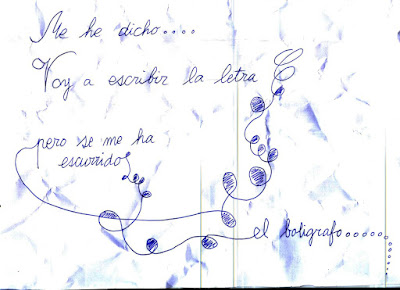 Me he dicho....
Voy a escribir la letra C
pero se me ha
escurrido
el boligrafo......